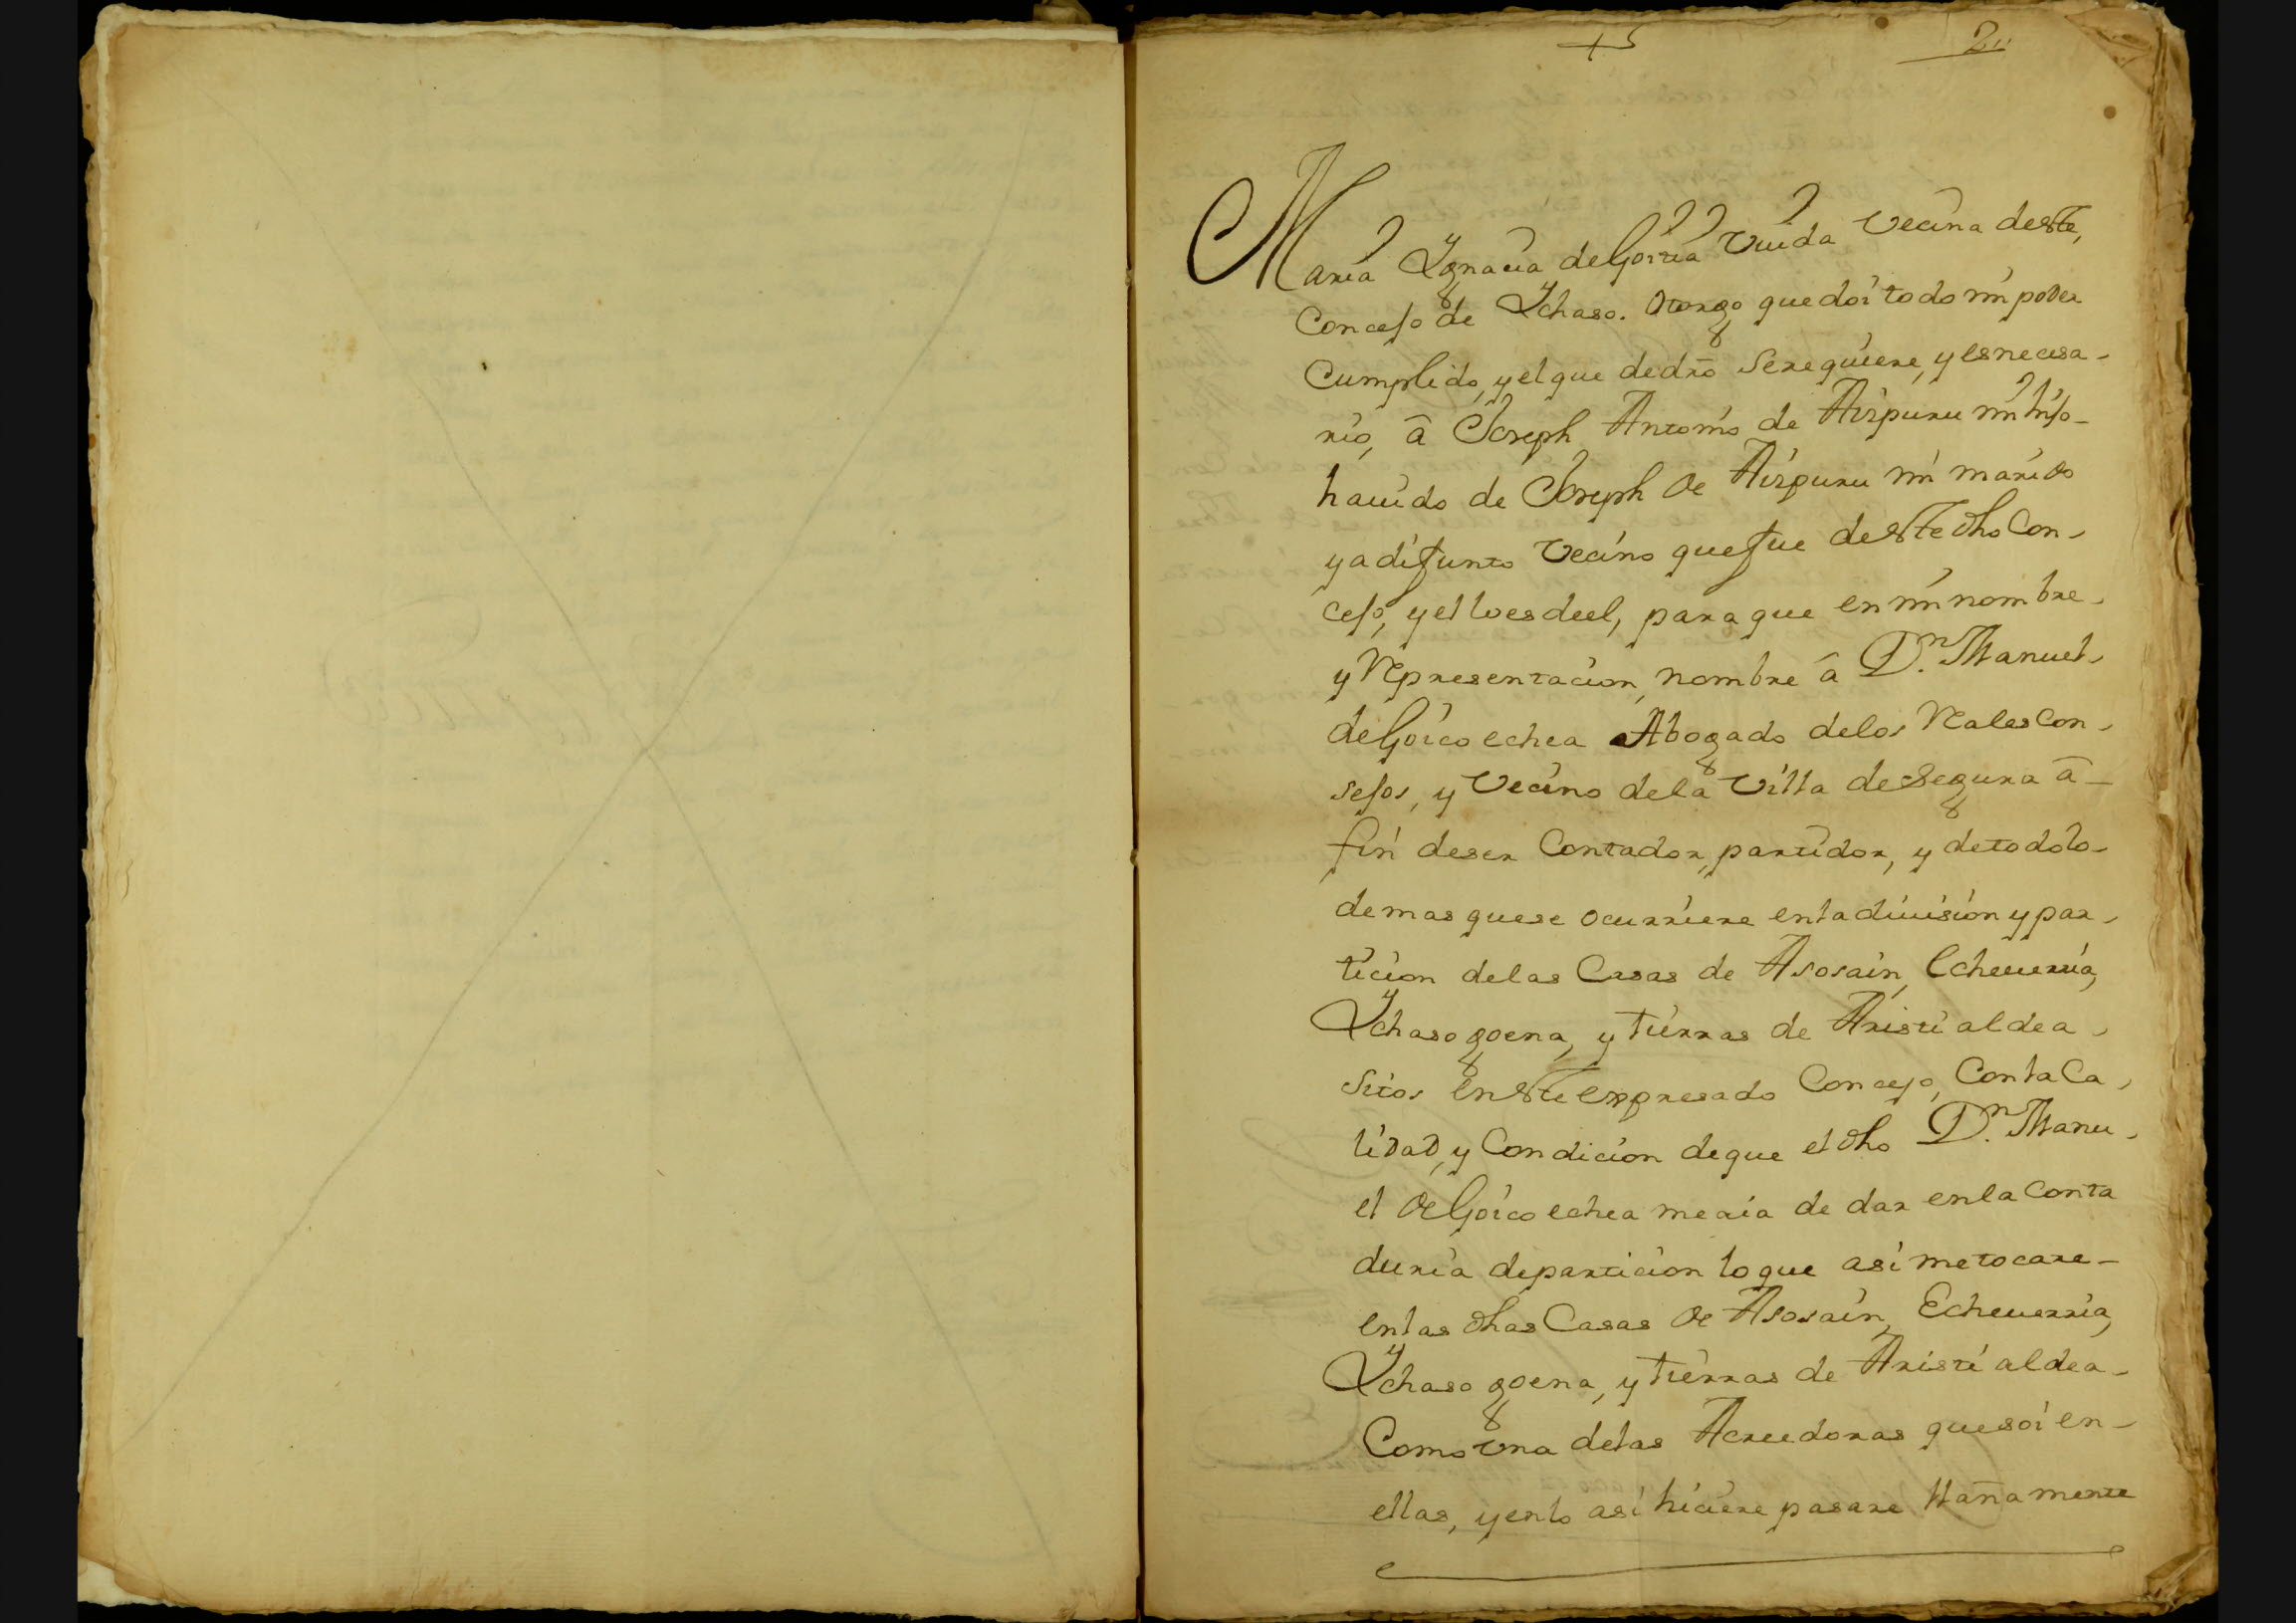 2
Maria Ygnacia de Goitia Viuda Vecina deste,
Concejo de Ychaso. Otorgo que doi todo mi poder
Cumplido, y el que de dro se requiere, y es necesa-
rio, â Joseph Antonio de Aizpuru mi hijo-
hauido de Joseph de Aizpuru mi marido
ya difunto Vecino que fue deste dho Con-
cejo, y el lo es deel, para que en mi nombre-
y Representacion, nombre â Dn. Manuel-
de Goicoechea Abogado delos Rales Con-
sejos, y Vecino dela Villa de Segura â-
fin deser Contador, partidor, y detodolo-
demas quese ocurriere enla diuision y par-
ticion delas Casas de Asosain, Echeuerria,
Ychasogoena, y tierras de Aristialdea-
Sitos enste expresado Concejo, Con la Ca-
lidad, y Condicion deque el dho Dn. Manu-
el de Goicoechea me aia de dar enla Conta
duria departicion loque asi metocare-
enlas dhas Casas de Asosain, Echeuerria,
Ychasogoena, y tierras de Aristialdea-
Como Vna delas Acreedoras quesoi en-
ellas, y enlo asi hiciere pasare llanamente